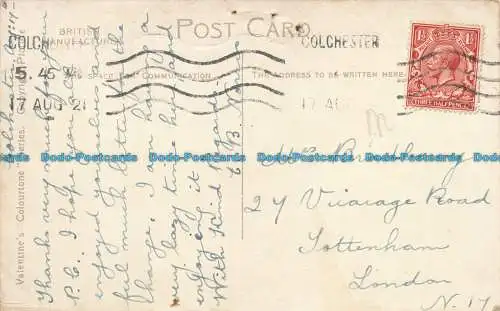 POST CARD
BRITISH
MANUFACTURE
THIS SPACE FOR COMMUNICATION
THE ADDRESS TO BE WRITTEN HERE
COLCHESTER
5.45
17 AUG 21
COLCHESTER
17 AUG
THREE HALFPENCE
Valentine's Colourtone Series. Copyright Picture
Colchester
Thanks very much for your
P.C. I hope you have
enjoyed yourselves and
feel much better for the
change. I am having a
very lazy time here and
enjoying it
With Kind Regards
27 Vicarage Road
Tottenham
London
N. 17
Dodo-Postcards Dodo-Postcards Dodo-Postcards Dodo-Postcards Dodo-Postcards Dodo-Postcards